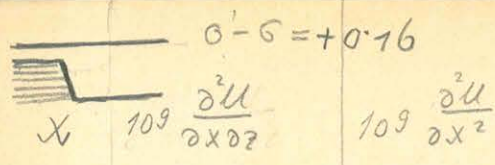 σ' - σ = + 0·16
X 10⁹ ∂²U/∂x∂z 10⁹ ∂²U/∂x²